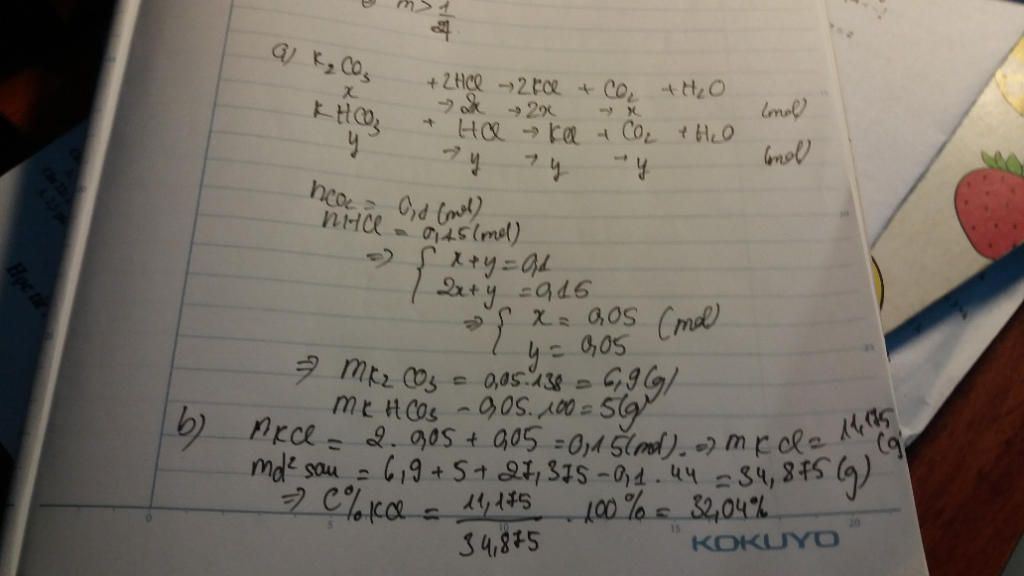 m > 1/27
a) K2CO3 + 2HCl → 2KCl + CO2 + H2O
x → 2x → 2x → x (mol)
KHCO3 + HCl → KCl + CO2 + H2O
y → y → y → y (mol)
nCO2 = 0,1 (mol)
nHCl = 0,15 (mol)
⇒ { x + y = 0,1
2x + y = 0,15
⇒ { x = 0,05 (mol)
y = 0,05
⇒ mK2CO3 = 0,05.138 = 6,9 (g)
mKHCO3 = 0,05.100 = 5 (g)
b) nKCl = 2. 0,05 + 0,05 = 0,15 (mol). ⇒ mKCl = 11,175 (g
md² sau = 6,9 + 5 + 27,375 - 0,1 . 44 = 34,875 (g)
⇒ C% KCl = 11,175/34,875 . 100% = 32,04%
5 10 15 20
KOKUYO